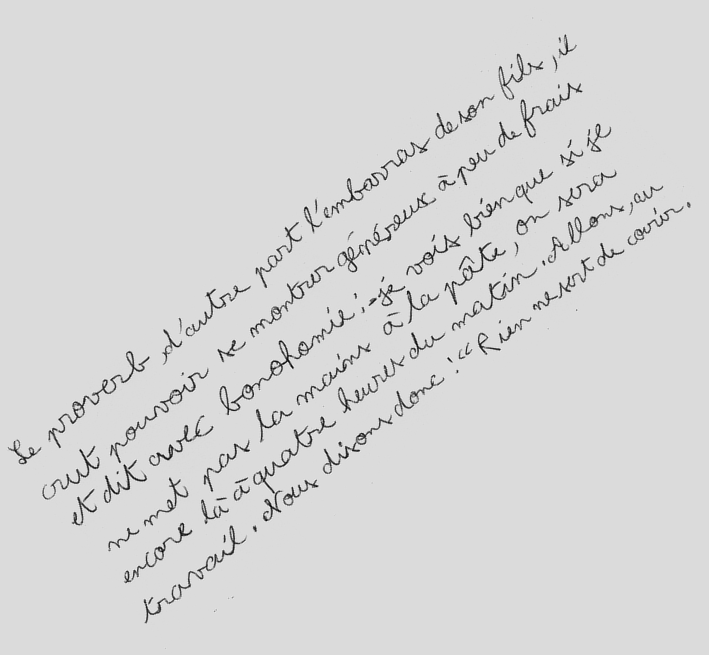 Le proverb, d'autre part l'embarras de son fils, il
crut pouvoir se montrer généreux à peu de frais
et dit avec bonohomie : - je vois bien que si je
ne met pas la mains à la pâte, on sera
encore là à quatre heures du matin. Allons, au
travail. Nous disons donc : « Rien ne sert de courir.